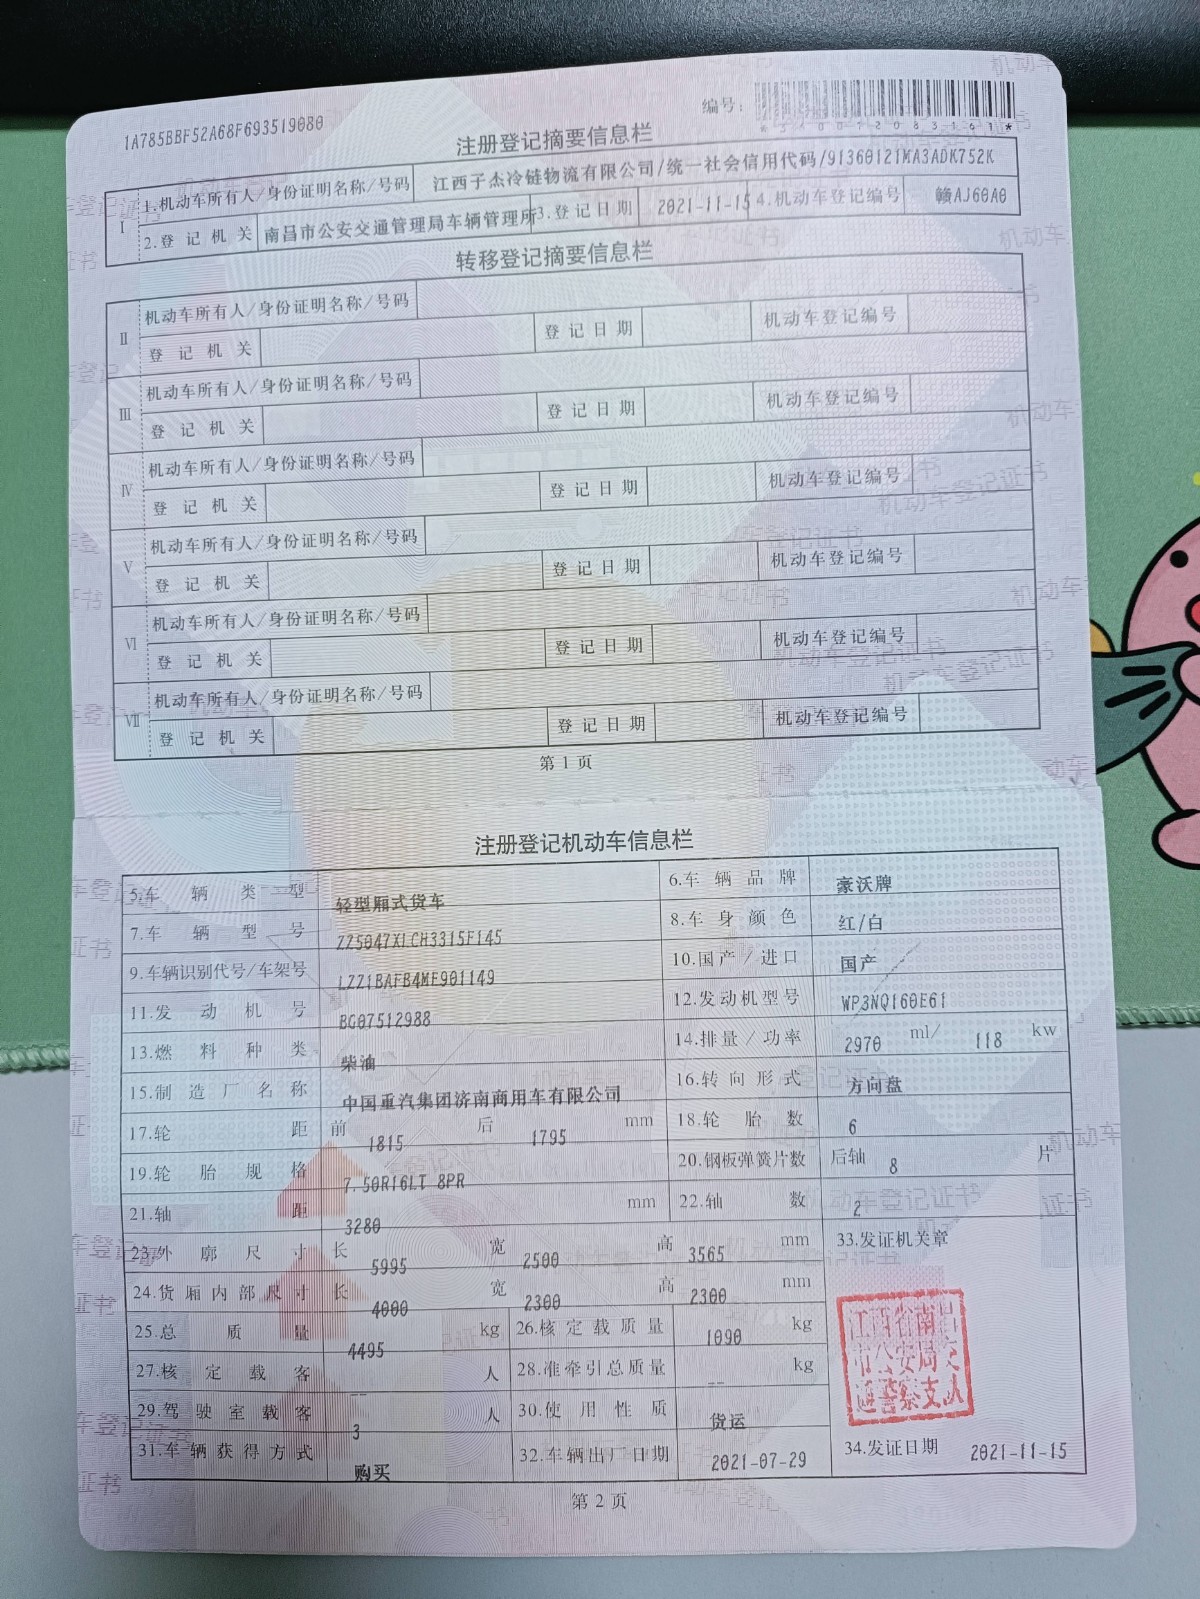 1A785BBF52A68F693519080
编号：
注册登记摘要信息栏
Ⅰ
1.机动车所有人/身份证明名称/号码 江西子杰冷链物流有限公司/统一社会信用代码/91360121MA3ADK752K
2.登记机关 南昌市公安交通管理局车辆管理所 3.登记日期 2021-11-15 4.机动车登记编号 赣AJ60A0
转移登记摘要信息栏
Ⅱ
机动车所有人/身份证明名称/号码
登记机关 登记日期 机动车登记编号
Ⅲ
机动车所有人/身份证明名称/号码
登记机关 登记日期 机动车登记编号
Ⅳ
机动车所有人/身份证明名称/号码
登记机关 登记日期 机动车登记编号
Ⅴ
机动车所有人/身份证明名称/号码
登记机关 登记日期 机动车登记编号
Ⅵ
机动车所有人/身份证明名称/号码
登记机关 登记日期 机动车登记编号
Ⅶ
机动车所有人/身份证明名称/号码
登记机关 登记日期 机动车登记编号
第1页
注册登记机动车信息栏
5.车辆类型 轻型厢式货车 6.车辆品牌 豪沃牌
7.车辆型号 ZZ5047XLCH3315F145 8.车身颜色 红/白
9.车辆识别代号/车架号 LZZ1BAFB4ME901149 10.国产/进口 国产
11.发动机号 BG07512988 12.发动机型号 WP3NQ160E61
13.燃料种类 柴油 14.排量/功率 2970 ml/ 118 kw
15.制造厂名称 中国重汽集团济南商用车有限公司 16.转向形式 方向盘
17.轮距 前 1815 后 1795 mm 18.轮胎数 6
19.轮胎规格 7.50R16LT 8PR 20.钢板弹簧片数 后轴 8 片
21.轴距 3280 mm 22.轴数 2
23.外廓尺寸 长 5995 宽 2500 高 3565 mm 33.发证机关章
24.货厢内部尺寸 长 4000 宽 2300 高 2300 mm
25.总质量 4495 kg 26.核定载质量 1090 kg
江西省南昌
市公安局交
通警察支队
27.核定载客 -- 人 28.准牵引总质量 -- kg
29.驾驶室载客 3 人 30.使用性质 货运
31.车辆获得方式 购买 32.车辆出厂日期 2021-07-29 34.发证日期 2021-11-15
第2页